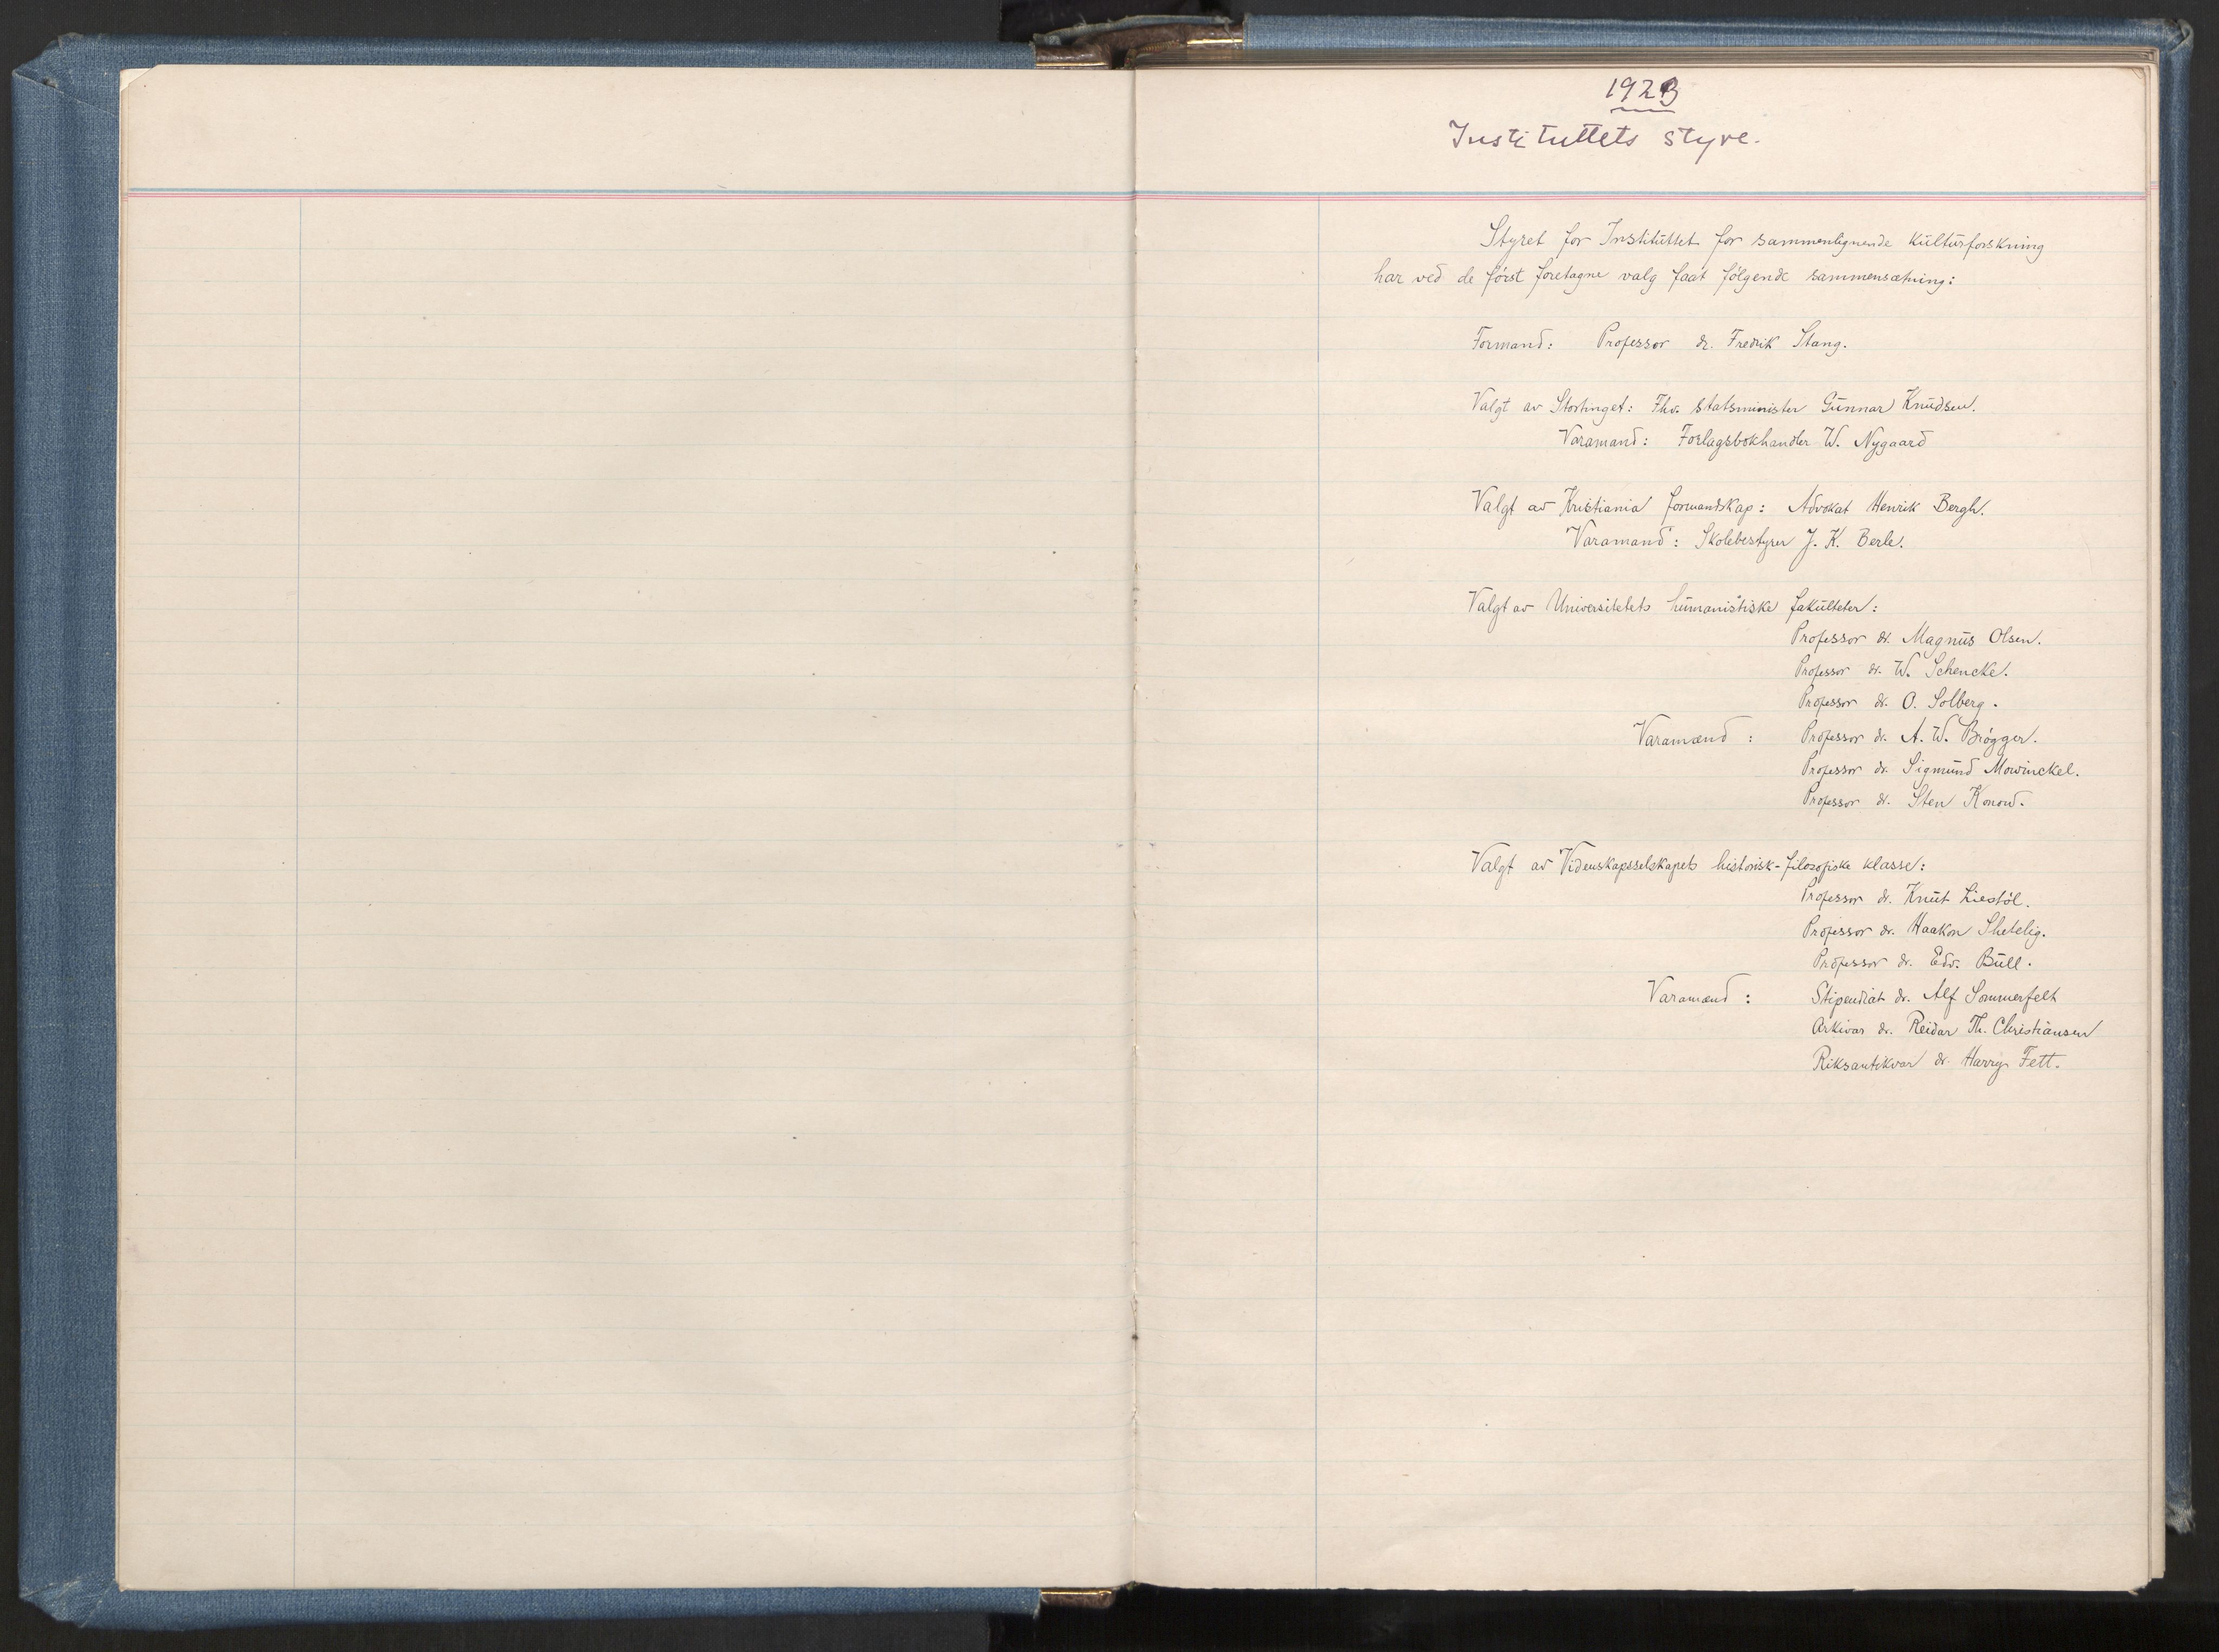 1923
Instituttets styre.
Styret for Instituttet for sammenlignende kulturforskning
har ved de først foretagne valg faat følgende sammensætning:
Formand: Professor dr. Fredrik Stang.
Valgt av Stortinget: Fhv. statsminister Gunnar Knudsen.
Varamand: Forlagsbokhandler W. Nygaard
Valgt av Kristiania formandskap: Advokat Henrik Bergh.
Varamand: Skolebestyrer J. K. Berle.
Valgt av Universitetets humanistiske fakulteter:
Professor dr. Magnus Olsen.
Professor dr. W. Schencke.
Professor dr. O. Solberg.
Varamænd: Professor dr. A. W. Brøgger.
Professor dr. Sigmund Mowinckel.
Professor dr. Sten Konow.
Valgt av Videnskapsselskapets historisk-filosofiske klasse:
Professor dr. Knut Liestøl.
Professor dr. Haakon Shetelig.
Professor dr. Edv. Bull.
Varamænd: Stipendiat dr. Alf Sommerfelt
Arkivar dr. Reidar Th. Christiansen
Riksantikvar dr. Harry Fett.